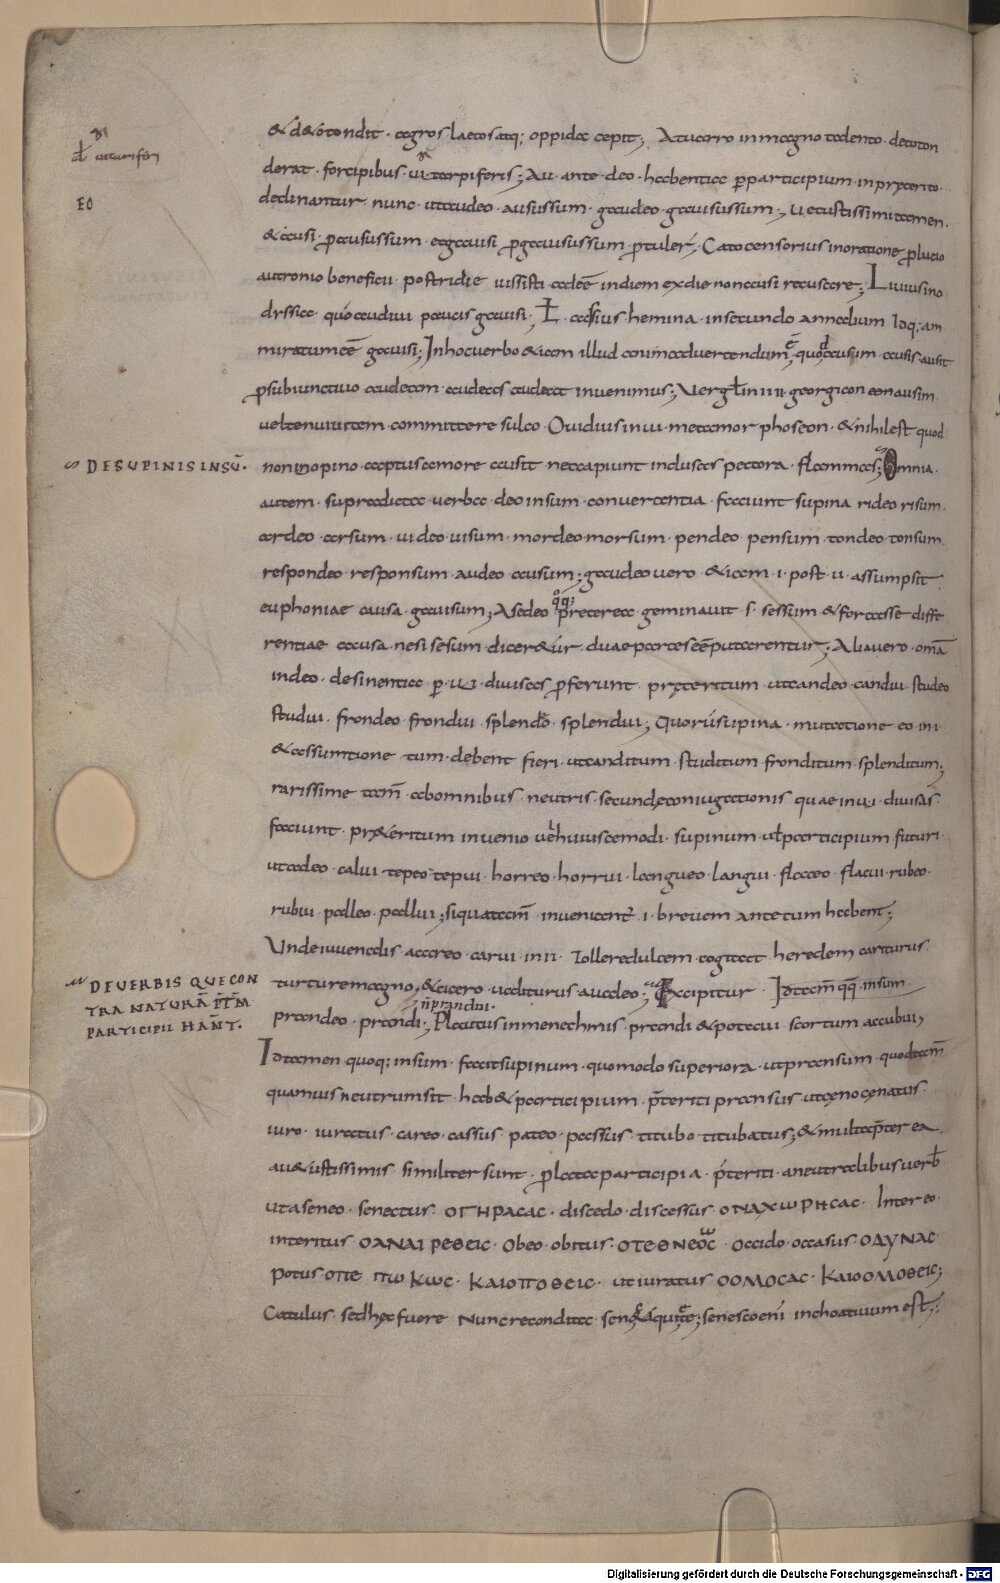 & detondit · agros laetos atq; oppida cepit; At uarro in magno talento · detoton
ł uulturiferi
derat · forcipibus · uitorpiferis; In ante deo · habentia p participium · in pręterito
EO
declinantur nunc · ut audeo ausus sum · gaudeo gauisus sum · uetustissimi tamen ·
& ausi · p ausus sum et gauisi p gauisus sum ptuler̄; Cato censorius in oratione p lucio
autronio beneficii · postridie iussisti adeē in diem ex die non ausi recusare; Liuius in o
dyssia · quo audiui paucis gauisi; Ł cassius hemina · in secundo annalium Idq; am
miratum eē gauisi; In hoc uerbo etiam illud animaduertendum ē quod ausum ausis ausit
p subiunctiuo audeam audeas audeat inuenimus; Vergł in IIII georgicon non ausim
uel tenui uitem committere sulco · Ouidius in ui metamorphoseon · & nihil est quod
DE SUPINIS IN SŪ ·
non inopino captus amore ausit nec capiunt inclusas pectora · flammas; Omnia
autem · supradicta uerba · deo in sum · conuertentia · faciunt supina rideo risum ·
ardeo · arsum · uideo uisum · mordeo morsum · pendeo pensum · tondeo · tonsum
respondeo responsum · audeo ausum; gaudeo uero etiam · i · post · u · assumpsit
euphoniae causa · gauisum; A sedeo qq; preterea geminauit s · sessum & fortasse diffe
rentiae causa · ne si sesum diceretur duae partes eē putarentur; Alia uero · om̄a
in deo · desinentia p · ui · diuisas pferunt pręteritum · ut candeo candui studeo
studui · frondeo frondui splendeo splendui; Quorū supina · mutatione eo in i
& assumtione tum · debent fieri · ut canditum · studitum fronditum splenditum;
rarissime tam̄ ab omnibus neutris secundę coniugationis quae in ui · diuisas
faciunt · pr&eritum inuenio ul huiuscemodi · supinum ul participium futuri ·
ut caleo · calui tepeo tepui · horreo · horrui · langueo · langui · flacceo · flacui · rubeo
rubui palleo · pallui; si qua tam̄ inueniantr̄ · i · breuem ante tum habent;
Unde iuuenalis a careo · carui · in II · Tollere dulcem cogitat heredem cariturus
DE VERBIS QUE CON
turture magno, & cicero · ualiturus a ualeo; Excipitur · Id tam̄ qq̄ · in sum
TRA NATURĀ P̄T̄M
n̄ prandui ·
prandeo · prandi; Plautus in menechmis · prandi & potaui scortum accubui;
PARTICIPII HAN̄T.
Id tamen quoq; in sum · facit supinum · quomodo superiora · ut pransum · quod tam̄
quamuis neutrum sit · hab& participium · p̄teriti pransus · ut cęno cęnatus
iuro · iuratus · careo · cassus pateo · passus · titubo titubatus; & multa p̄terea
a u&ustissimis similiter sunt plata participia · p̄teriti · a neutralibus uerb̄
ut a seneo · senectus · ΟΓΗΡΑCΑC · discedo · discessus ΟΝΑΧωΡΗCΑC · Intereo
interitus ΟΑΝΑΙΡΕΘΕΙC · Obeo · obitus · ΟΤΕΘΝΕωC · Occido · occasus ΟΔΥΝΑC
Potus · ΟΠΕ ΠωΚωC · ΚΑΙΟΠΟΘΕΙC · ut iuratus ΟΟΜΟCΑC · ΚΑΙΟΟΜΟΘΕΙC;
Catulus · sed hęc fuere Nunc recondita · seneʒ &quiete; senesco enī inchoatiuum est;
Digitalisierung gefördert durch die Deutsche Forschungsgemeinschaft - DFG